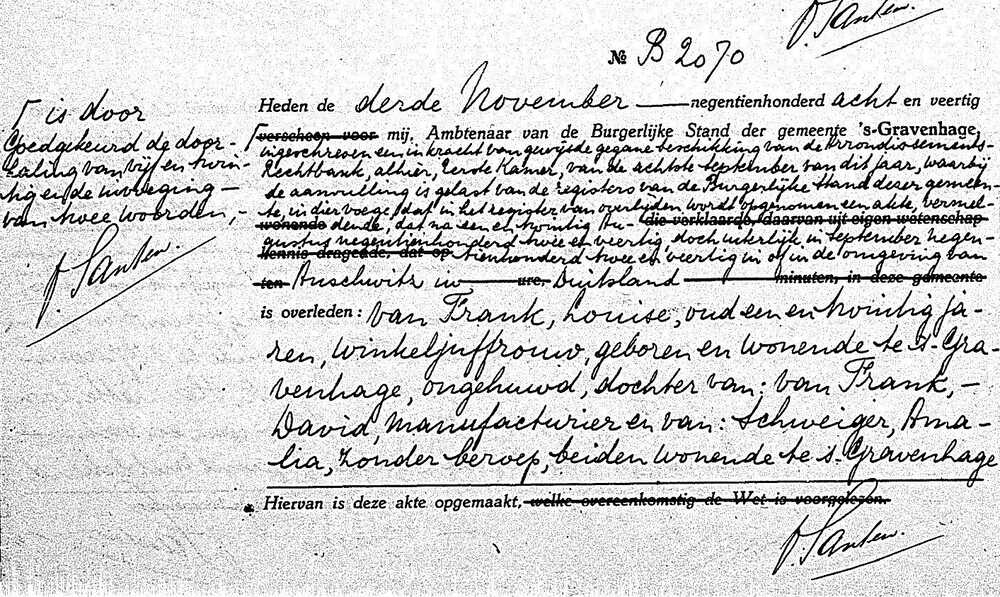 v. Santen.
№ B 2070
Heden de derde November — negentienhonderd acht en veertig
verscheen voor mij, Ambtenaar van de Burgerlijke Stand der gemeente 's-Gravenhage,
ingeschreven een in kracht van gewijsde gegane beschikking van de Arrondissements-
Rechtbank, alhier, Eerste Kamer, van de achtste September van dit jaar, waarbij
de aanvulling is gelast van de registers van de Burgerlijke Stand dezer gemeen-
te, in dier voege, dat in het register van overlijden wordt opgenomen een akte, vermel-
wonende dende, dat na een en twintig Au- die verklaarde, daarvan uit eigen wetenschap
gustus negentienhonderd twee en veertig, doch uiterlijk in September negen-
kennis dragende, dat op tienhonderd twee en veertig in of in de omgeving van
ten Auschwitz in — ure, Duitsland — minuten, in deze gemeente
is overleden: van Frank, Louise, oud een en twintig ja-
ren, winkeljuffrouw, geboren en wonende te 's-Gra-
venhage, ongehuwd, dochter van: van Frank, –
David, manufacturier en van: Schweiger, Ama-
lia, zonder beroep, beiden wonende te 's-Gravenhage
Hiervan is deze akte opgemaakt, welke overeenkomstig de Wet is voorgelezen.
v. Santen.
┌ is door
Goedgekeurd de door-
haling van vijf en twin-
tig en de invoeging –
van twee woorden, –
v. Santen.